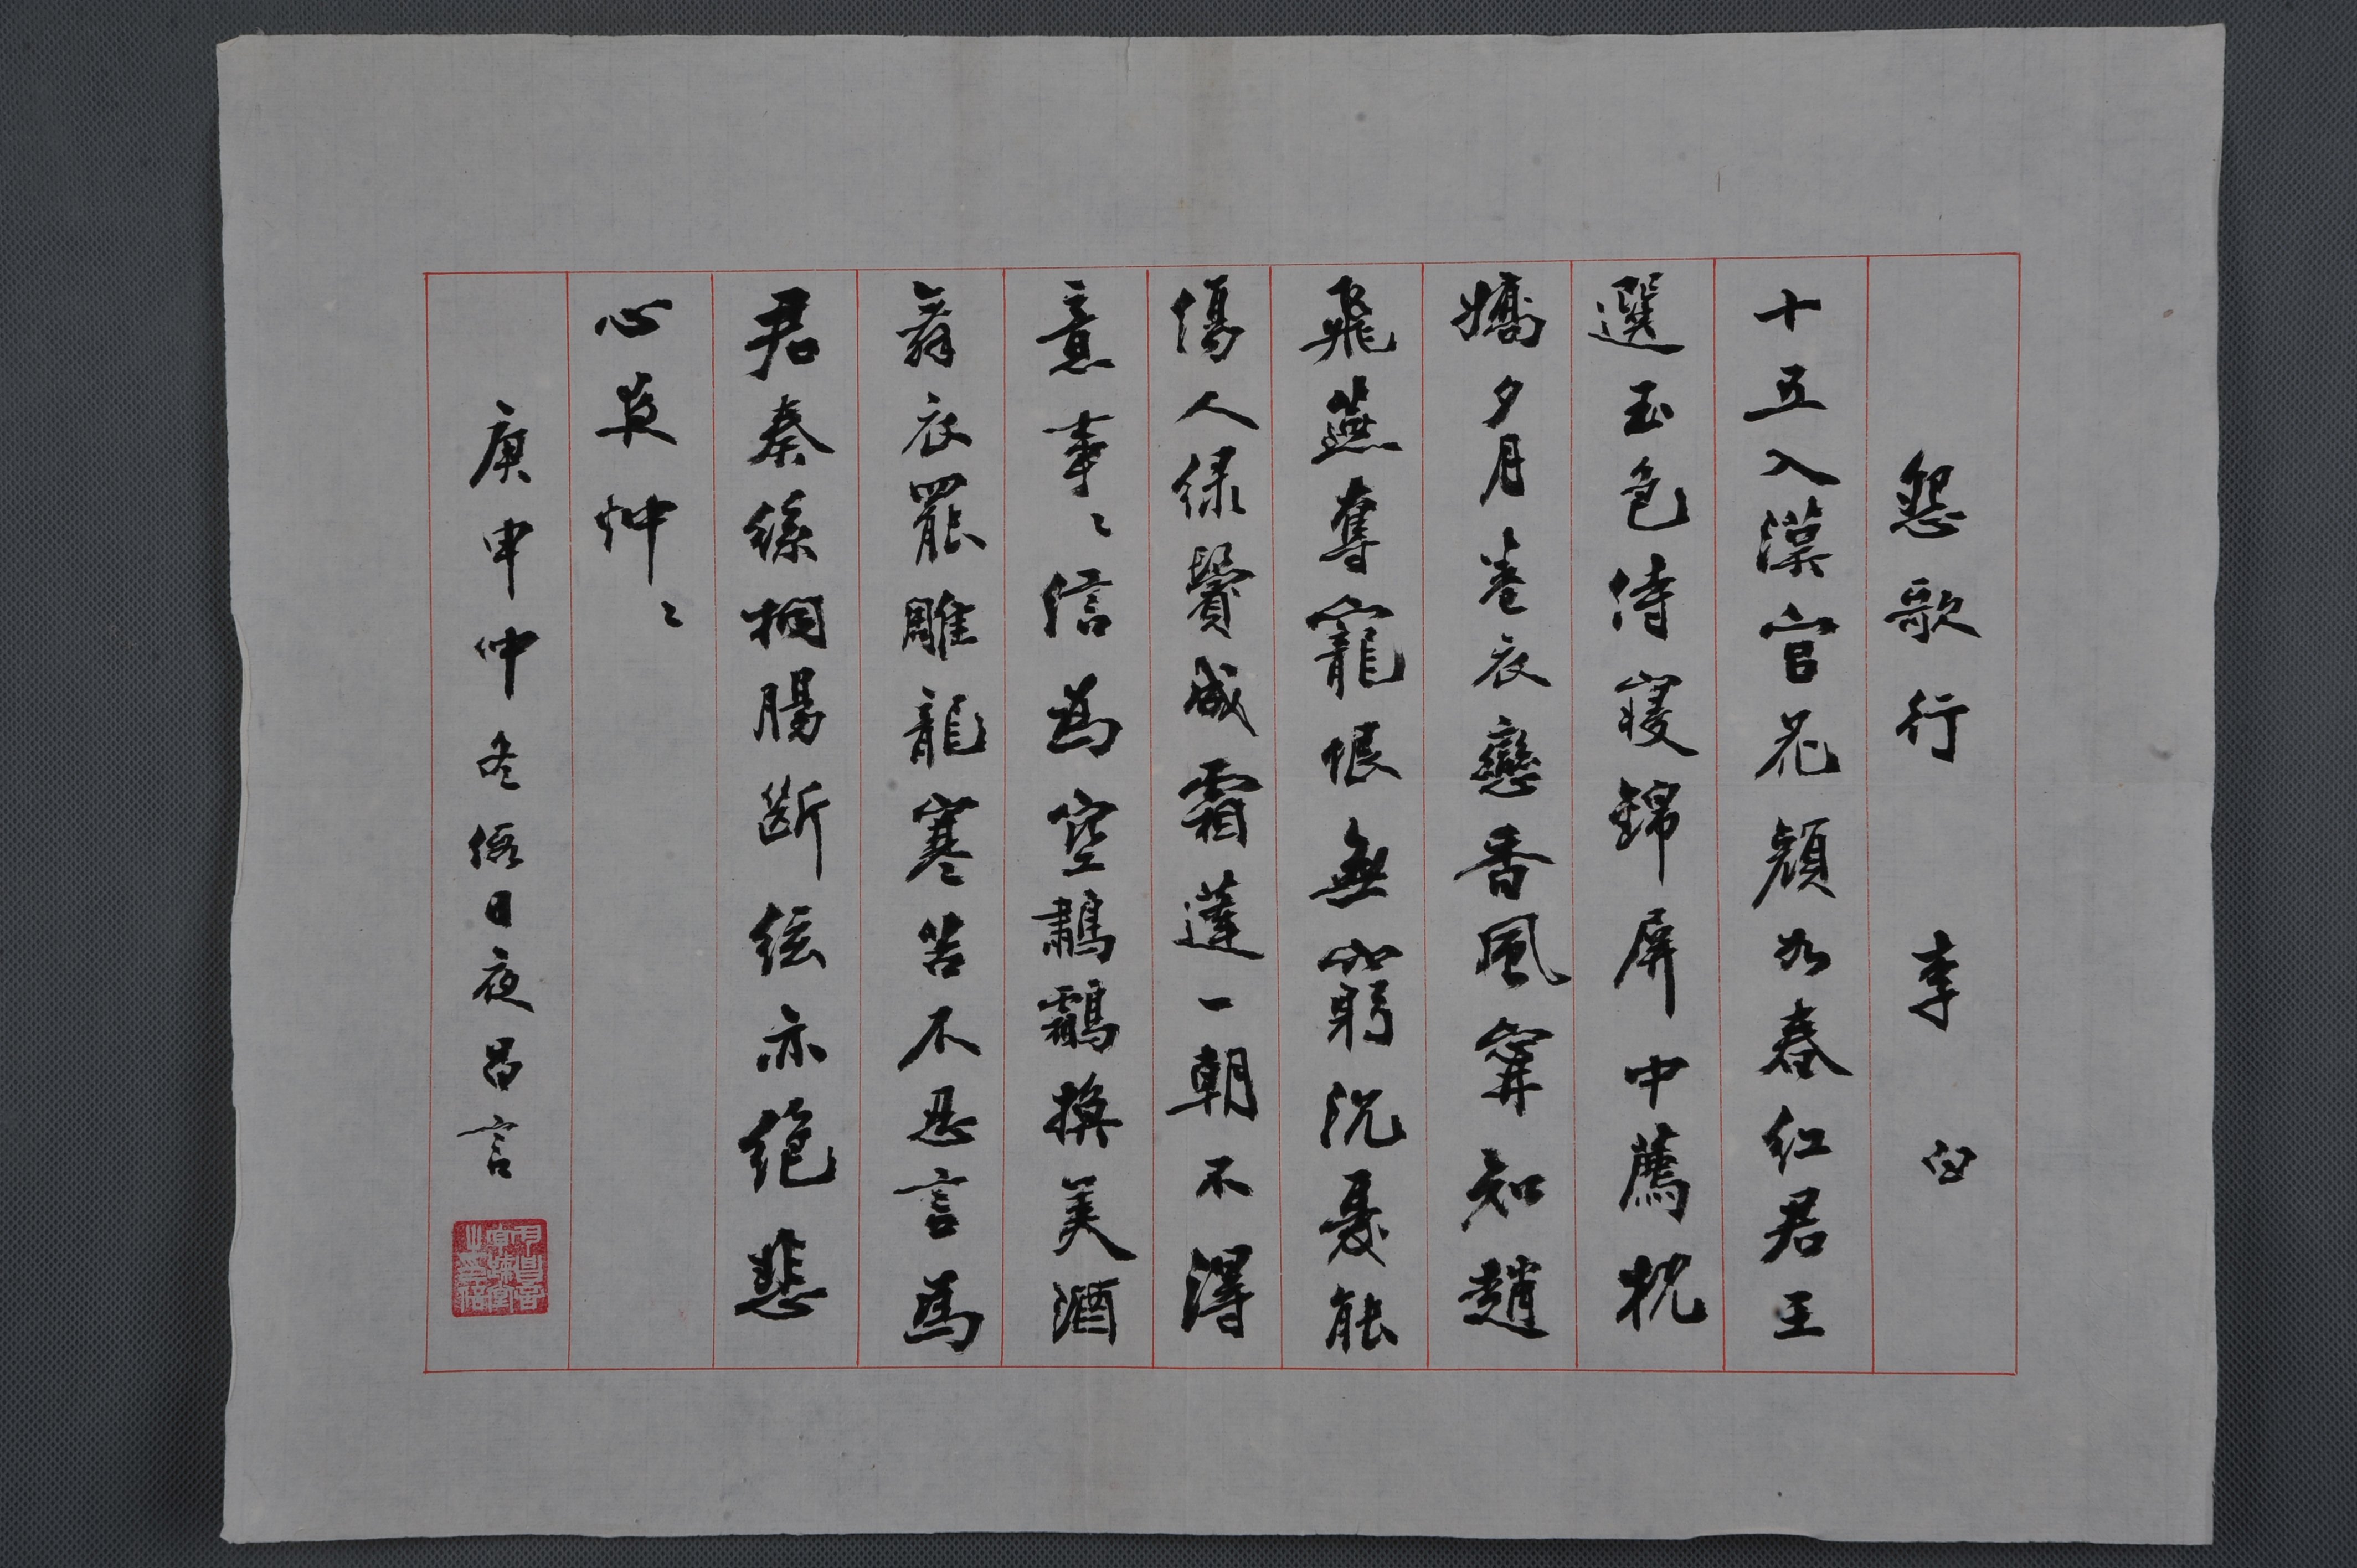 怨歌行 李白
十五入漢宫花顔如春紅君王
選玉色侍寢錦屏中薦枕
嬌夕月卷衣戀香風寧知趙
飛燕奪寵恨無窮沉憂能
傷人緑鬢成霜蓬一朝不得
意事〻信為空鷫鸘換美酒
舞衣罷雕龍寒苦不忍言為
君奏絲桐腸斷絃亦絶悲
心夜忡〻
庚申仲冬假日夜昌言